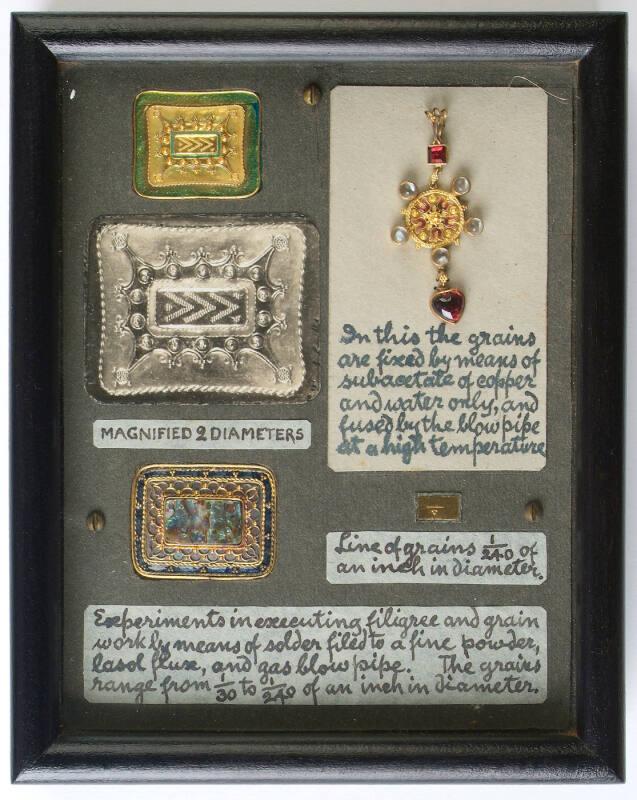 In this the grains
are fixed by means of
subacetate of copper
and water only, and
fused by the blow pipe
at a high temperature
MAGNIFIED 2 DIAMETERS
Line of grains 1/240 of
an inch in diameter.
Experiments in executing filigree and grain
work by means of solder filed to a fine powder,
lasol flux, and gas blow pipe. The grains
range from 1/30 to 1/240 of an inch in diameter.